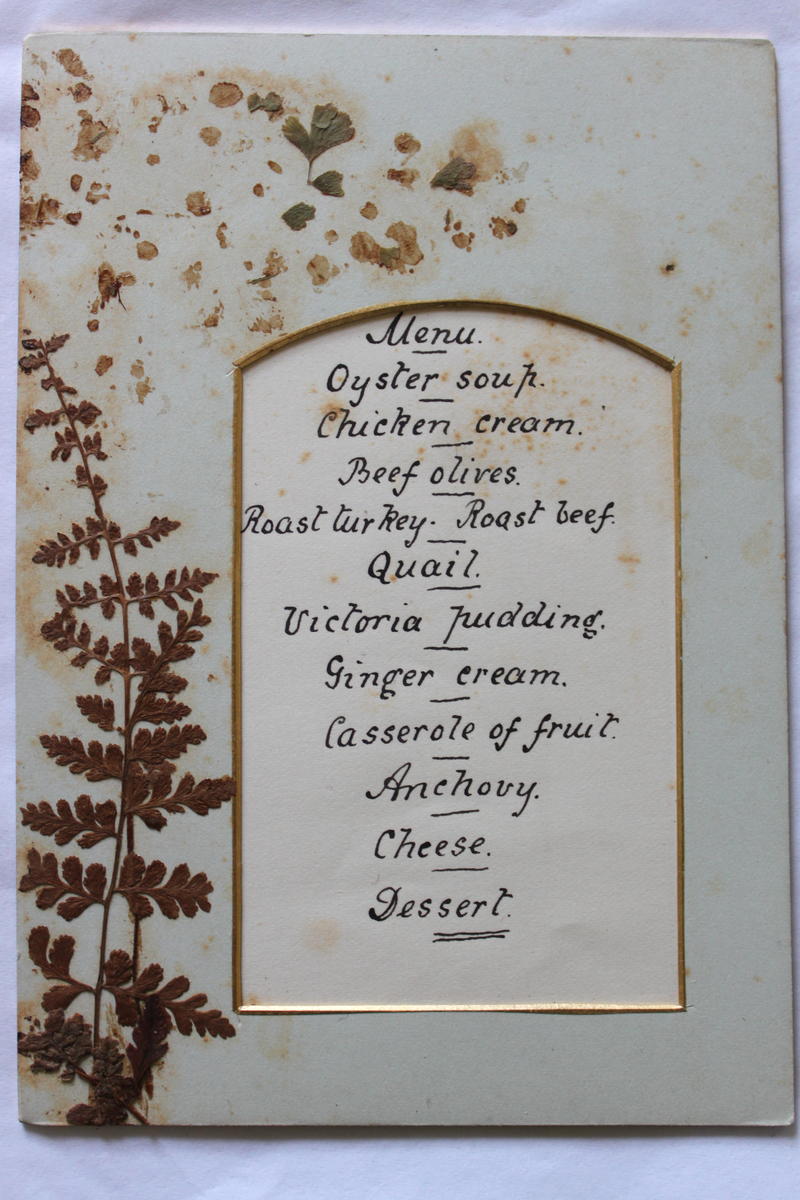 Menu.
Oyster soup.
Chicken cream.
Beef olives.
Roast turkey. Roast beef.
Quail.
Victoria pudding.
Ginger cream.
Casserole of fruit.
Anchovy.
Cheese.
Dessert.